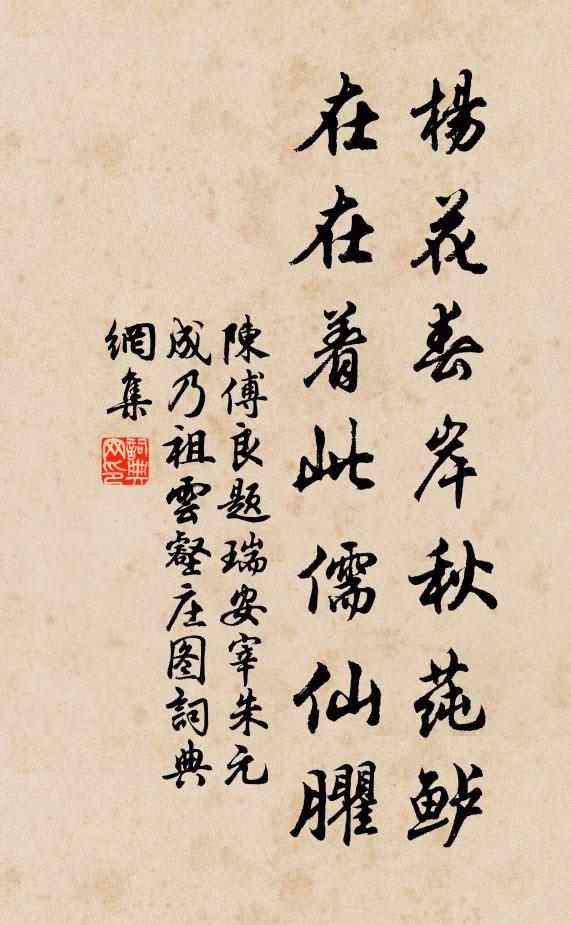 楊花春岸秋莼鲈
在在着此儒仙臞
陳傅良题瑞安宰朱元
成乃祖雲壑庄图詞典
網集
詞典网印